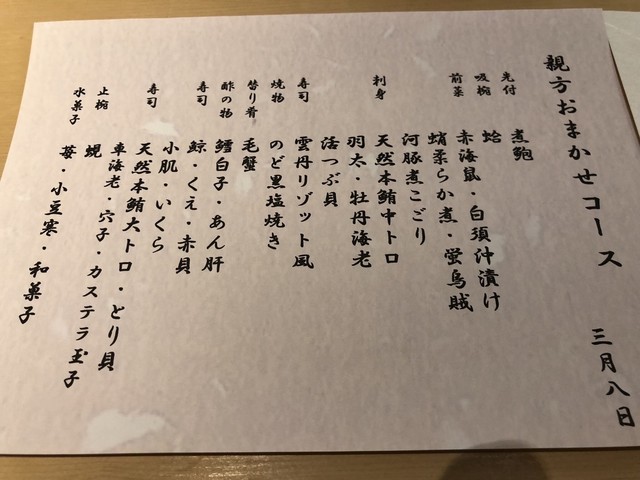 親方おまかせコース 三月八日
先付 煮鮑
吸椀 蛤
前菜 赤海鼠・白須沖漬け
蛸柔らか煮・蛍烏賊
河豚煮こごり
刺身 天然本鮪中トロ
羽太・牡丹海老
活つぶ貝
寿司 雲丹リゾット風
焼物 のど黒塩焼き
替り肴 毛蟹
酢の物 鱈白子・あん肝
寿司 鯨・くえ・赤貝
小肌・いくら
寿司 天然本鮪大トロ・とり貝
車海老・穴子・カステラ玉子
止椀 蜆
水菓子 苺・小豆寒・和菓子